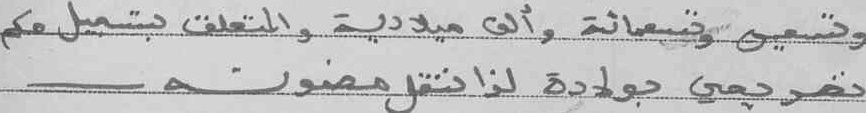 وتسعين وتسعمائة وألف ميلادية والمتعلق بتسجيل حكم
تصريحي بولادة لذا ننقل مضمونه